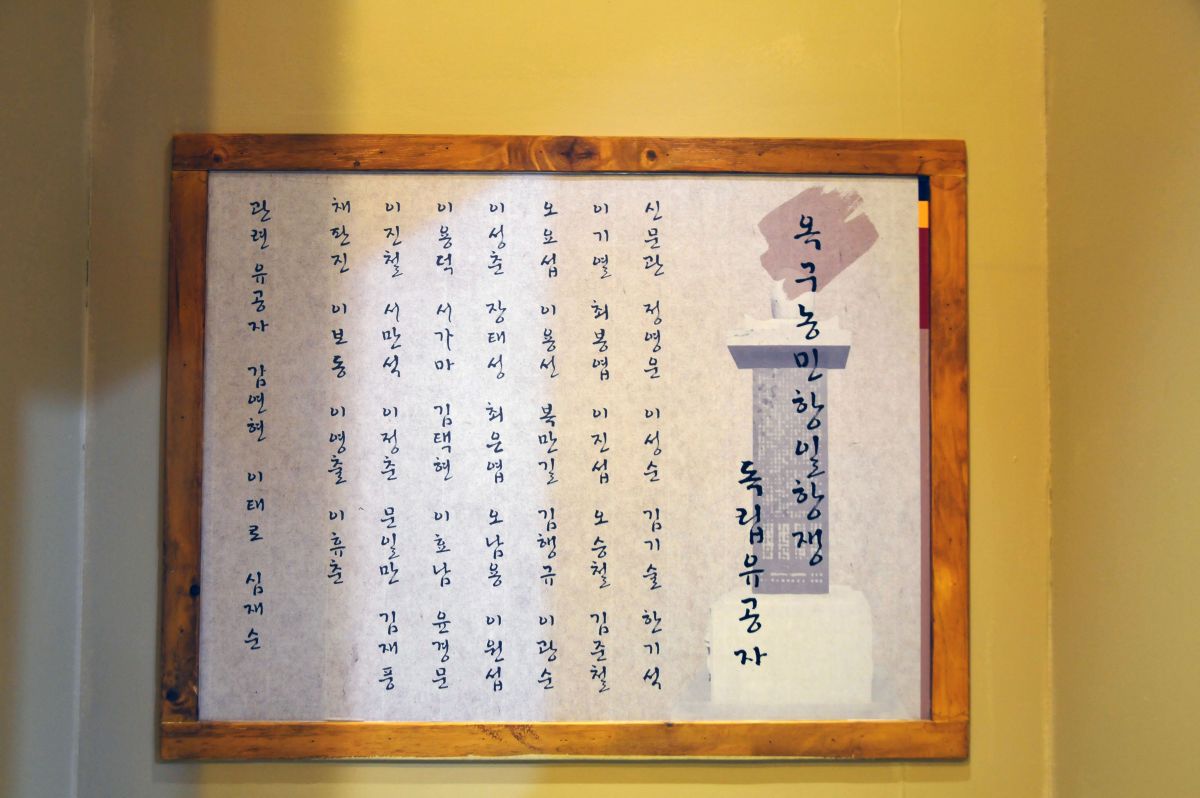 옥구농민항일항쟁
독립유공자
신문관 정영운 이성순 김기술 한기석
이기열 최봉엽 이진섭 오승철 김준철
오요섭 이용선 복만길 김행규 이광순
이성춘 장태성 최은엽 오남용 이원섭
이용덕 서가마 김택현 이효남 윤경문
이진철 서만석 이정춘 문일만 김재풍
채판진 이보동 이영출 이휴춘
관련 유공자 감연현 이태로 심재순